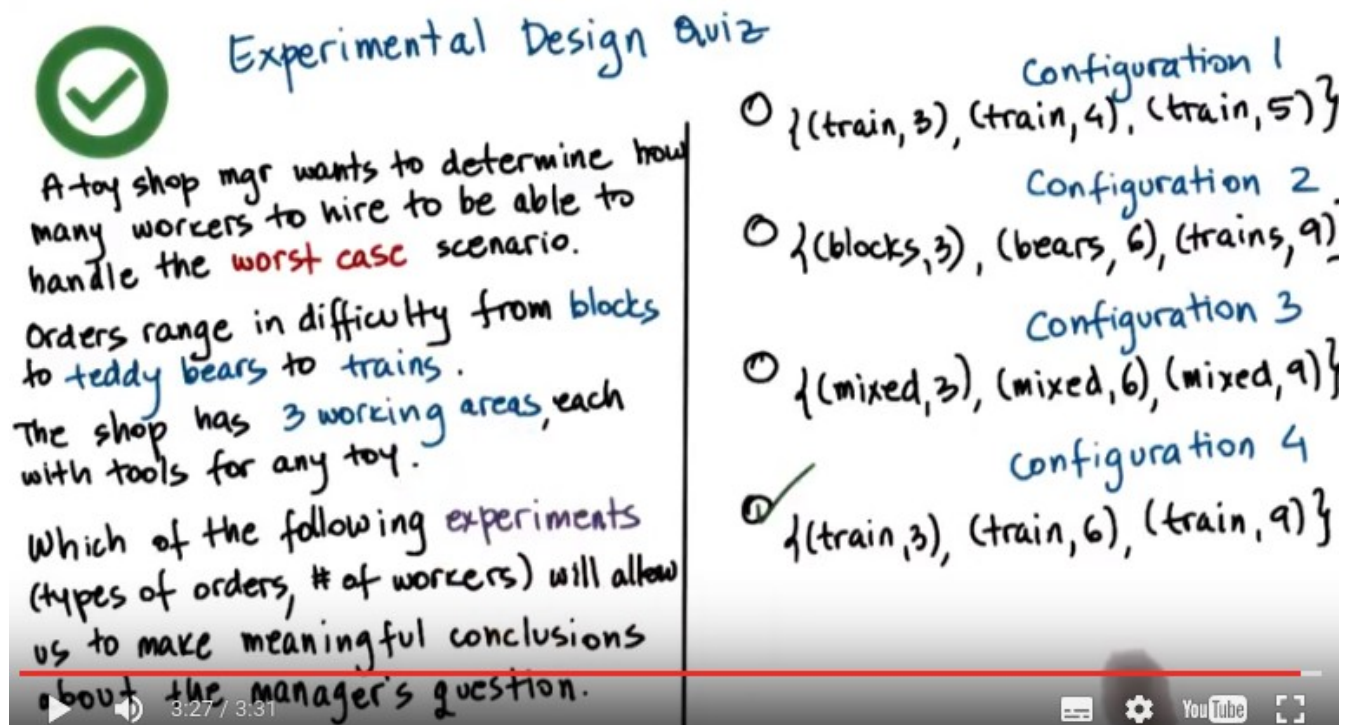 Experimental Design Quiz
A toy shop mgr wants to determine how
many workers to hire to be able to
handle the worst case scenario.
Orders range in difficulty from blocks
to teddy bears to trains.
The shop has 3 working areas, each
with tools for any toy.
Which of the following experiments
(types of orders, # of workers) will allow
us to make meaningful conclusions
about the manager's question.
Configuration 1
{(train, 3), (train, 4), (train, 5)}
Configuration 2
{(blocks, 3), (bears, 6), (trains, 9)
Configuration 3
{(mixed, 3), (mixed, 6), (mixed, 9)}
Configuration 4
{(train, 3), (train, 6), (train, 9)}
3:27 / 3:31
YouTube